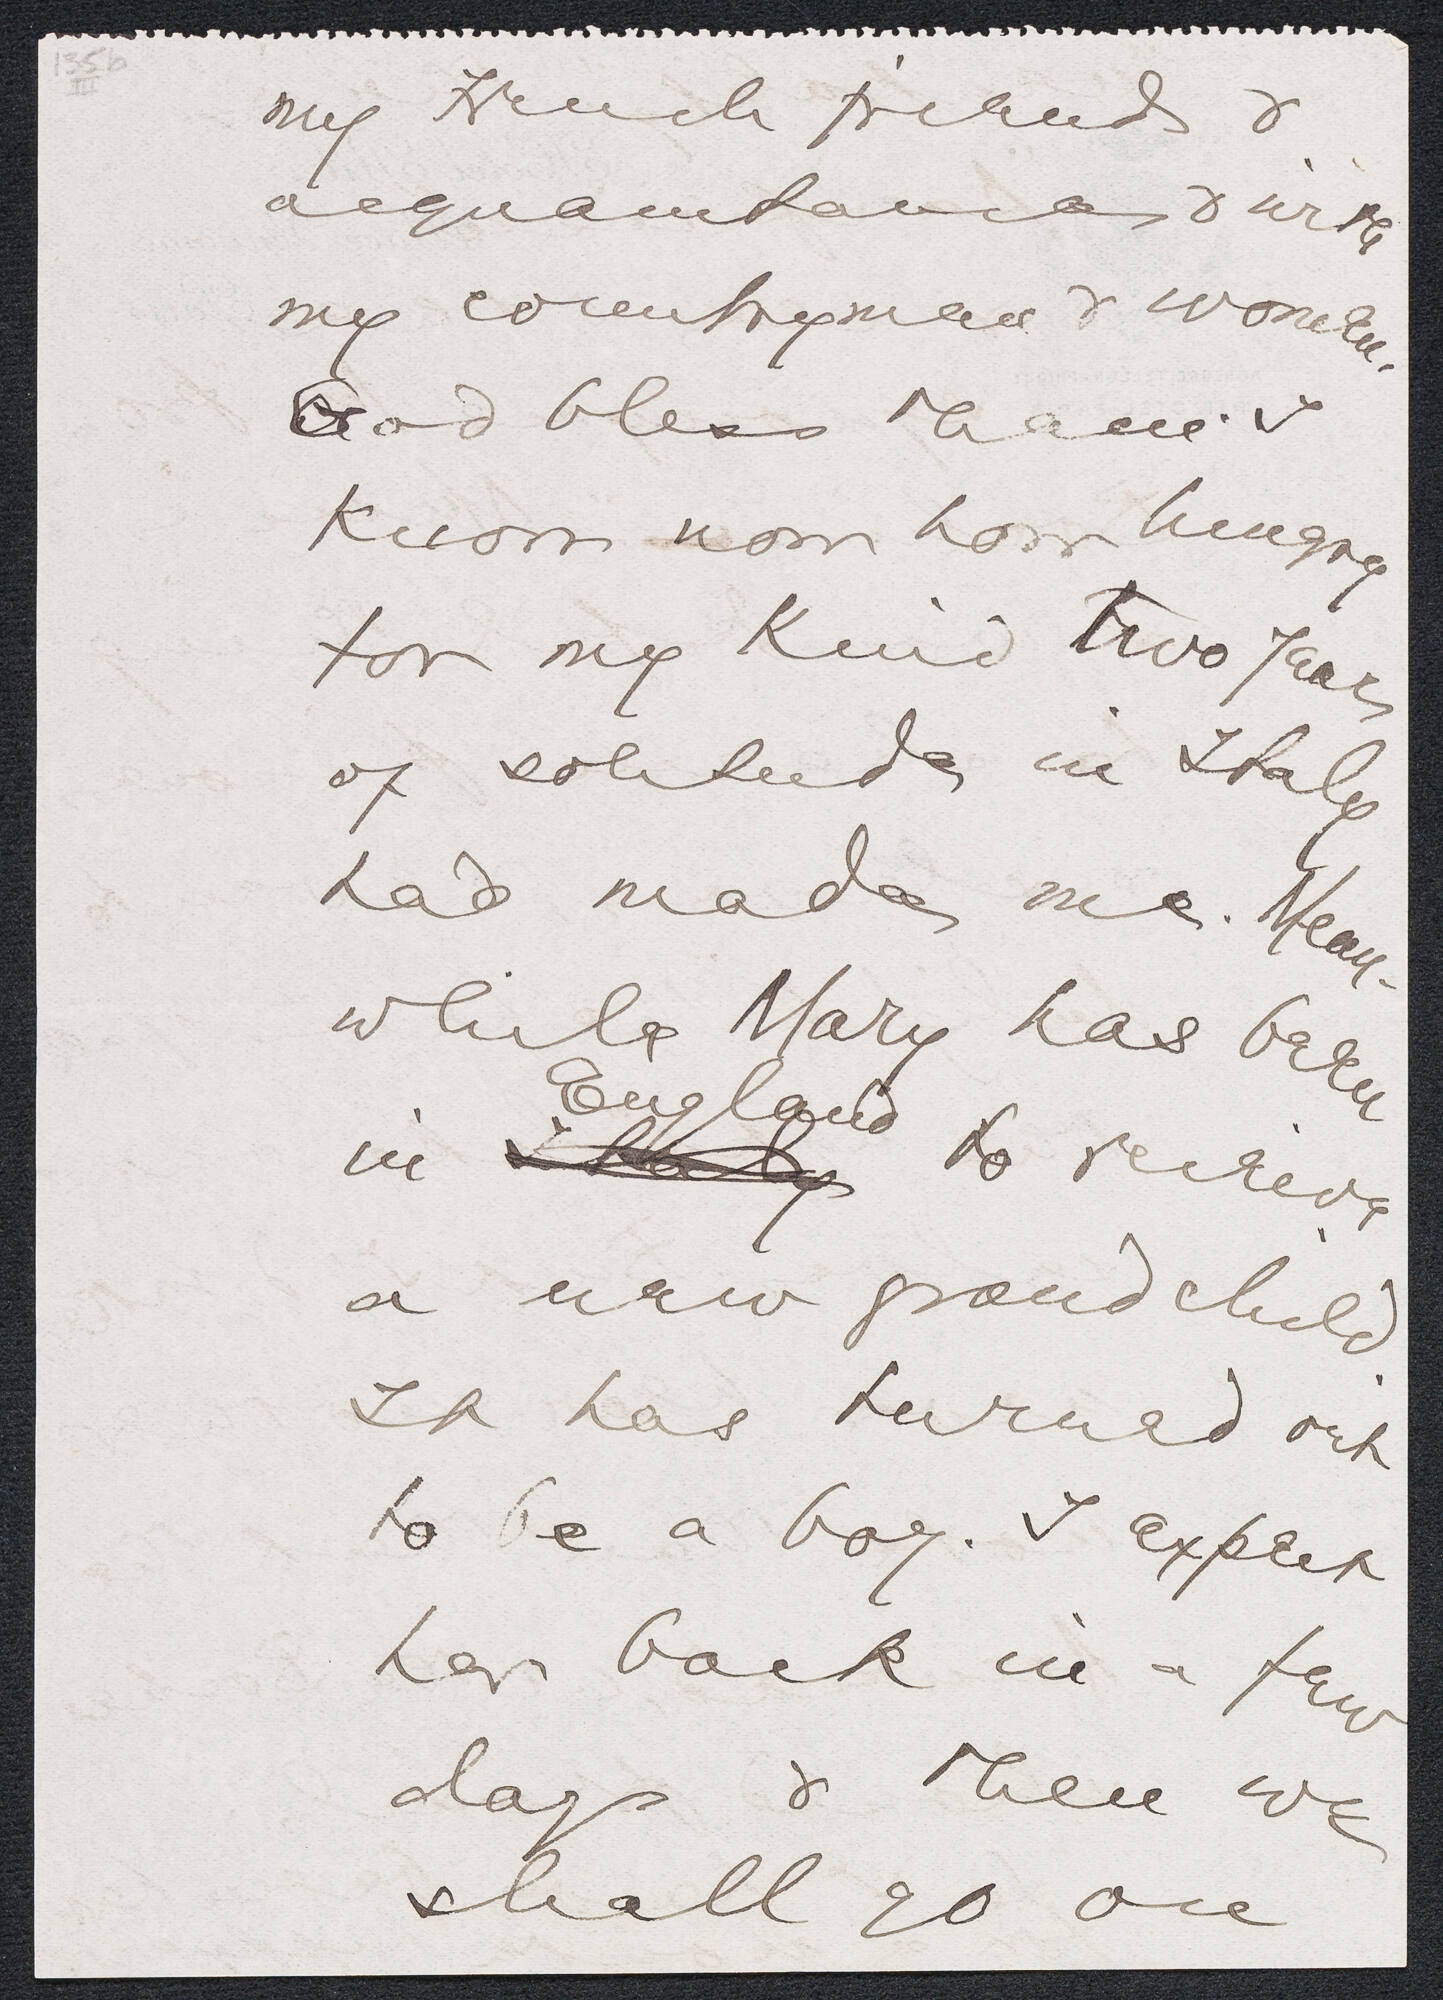 135b
III
my French friends &
acquaintances & with
my countrymen & women.
God bless them. I
know now how hungry
for my kind two years
of solitude in Italy
had made me. Mean-
while Mary has been
England
in Italy to receive
a new grandchild.
It has turned out
to be a boy. I expect
her back in a few
days & then we
shall go on